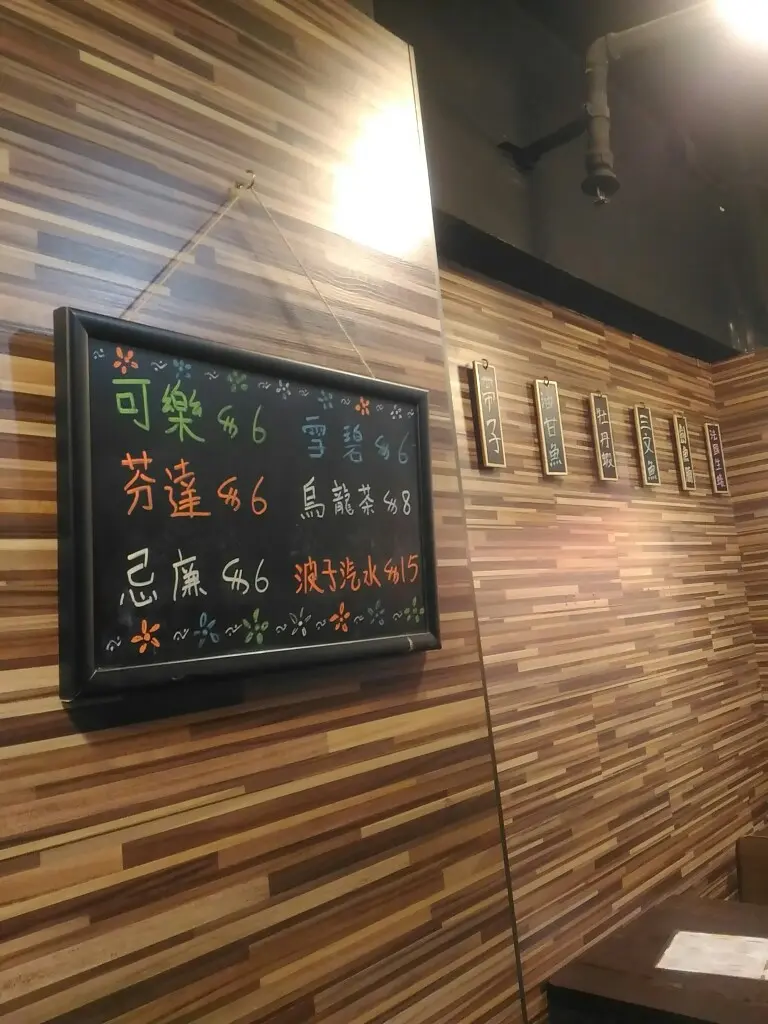 可樂 $6
雪碧 $6
芬達 $6
烏龍茶 $8
忌廉 $6
波子汽水 $15
帶子
油甘魚
牡丹蝦
三文魚